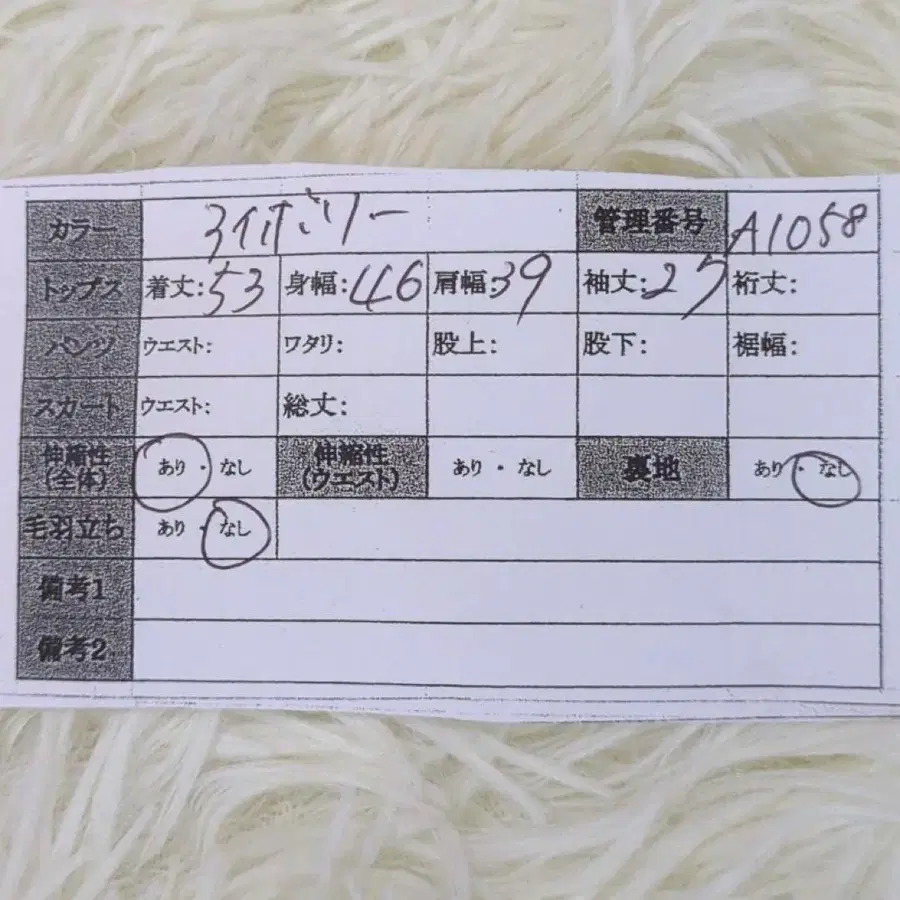 カラー アイボリー 管理番号 A1058
トップス 着丈:53 身幅:46 肩幅:39 袖丈:25 裄丈:
パンツ ウエスト: ワタリ: 股上: 股下: 裾幅:
スカート ウエスト: 総丈:
伸縮性(全体) あり・なし 伸縮性(ウエスト) あり・なし 裏地 あり・なし
毛羽立ち あり・なし
備考1
備考2